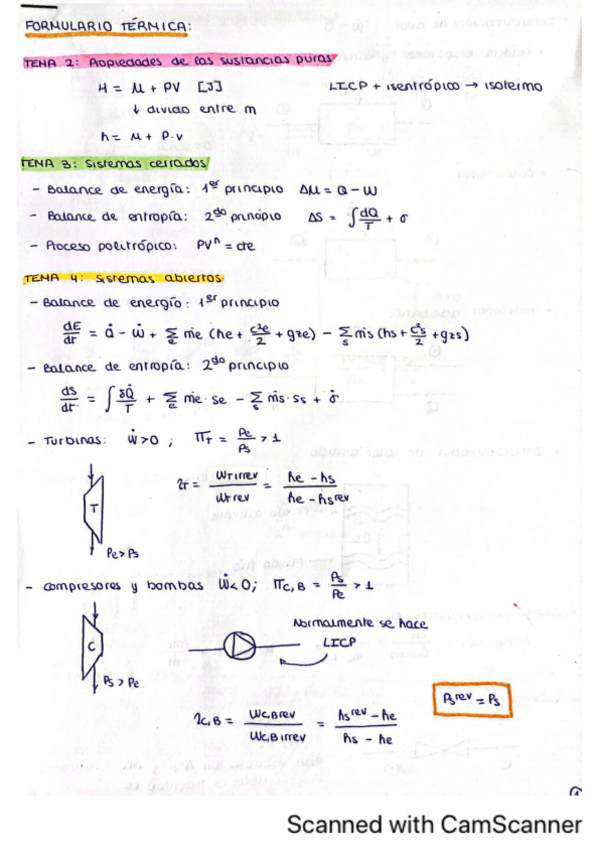 FORMULARIO TÉRMICA:
TEMA 2: Propiedades de las sustancias puras
H = U + PV [J]
LICP + isentrópico → isotermo
↓ divido entre m
h = u + P·v
TEMA 3: Sistemas cerrados
- Balance de energía: 1er principio ΔU = Q - W
- Balance de entropía: 2do principio ΔS = ∫ dQ/T + σ
- Proceso politrópico: PVⁿ = cte
TEMA 4: Sistemas abiertos
- Balance de energía: 1er principio
dE/dt = Q̇ - Ẇ + Σe ṁe (he + c²e/2 + gze) - Σs ṁs (hs + c²s/2 + gzs)
- Balance de entropía: 2do principio
ds/dt = ∫ δQ̇/T + Σe ṁe·se - Σs ṁs·ss + σ̇
- Turbinas: Ẇ>0 ; ΠT = Pe/Ps > 1
ηT = WTirrev/WTrev = he - hs/he - hsrev
T
Pe > Ps
- Compresores y bombas Ẇ<0; ΠC,B = Ps/Pe > 1
Normalmente se hace
LICP
C
Ps > Pe
Psrev = Ps
ηC,B = WC,Brev/WC,Birrev = hsrev - he/hs - he
Scanned with CamScanner